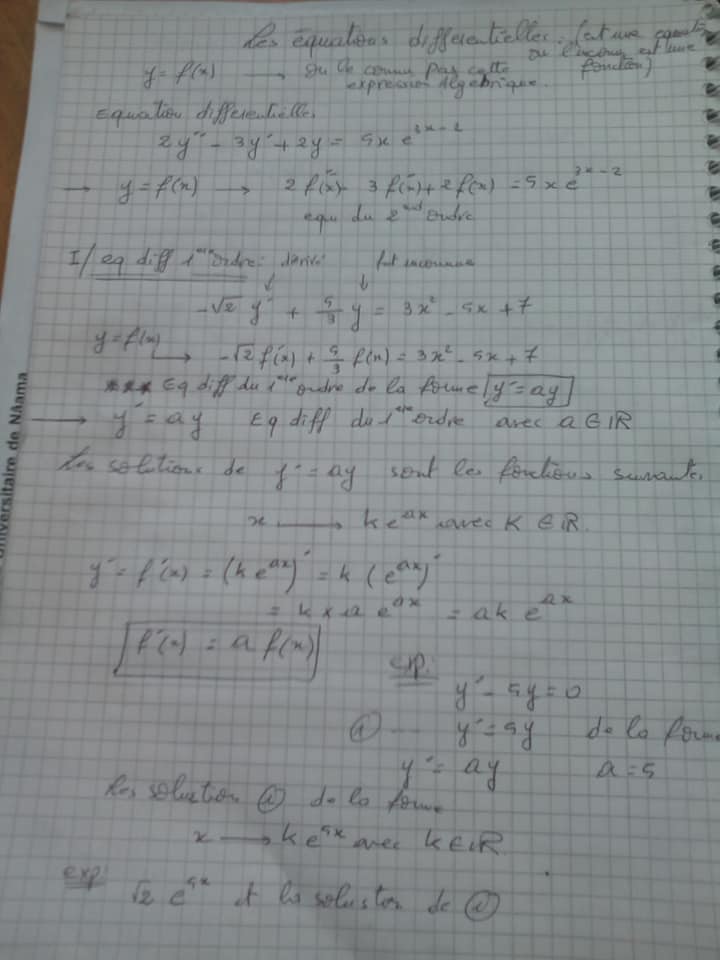 Les équations differentielles. (est une equat
ou l'inconu est une
fonction)
y = f(x) → on ne connu pas cette
expression algebrique.
Equation differentielles
2y'' - 3y' + 2y = 5x e^{3x-2}
→ y = f(x) → 2f''(x) - 3f'(x) + 2f(x) = 5x e^{3x-2}
equ du 2^{nd} ordre
I/ eq diff 1^{ere} ordre: derivé fct inconnue
-√2 y' + 5/3 y = 3x² - 5x + 7
y = f(x) → -√2 f'(x) + 5/3 f(x) = 3x² - 5x + 7
Eq diff du 1^{ere} ordre de la forme y' = ay
→ y' = ay Eq diff du 1^{ere} ordre avec a ∈ IR
Les solutions de y' = ay sont les fonctions suivantes
x → k e^{ax} avec K ∈ IR.
y' = f'(x) = (k e^{ax})' = k (e^{ax})'
= k × a e^{ax} = ak e^{ax}
f'(x) = a f(x)
exp:
y' - 5y = 0
y' = 5y de la forme
y' = ay a = 5
Les solution de la forme
x → k e^{5x} avec k ∈ IR
exp:
√2 e^{5x} et la solution de
universitaire de Nâama